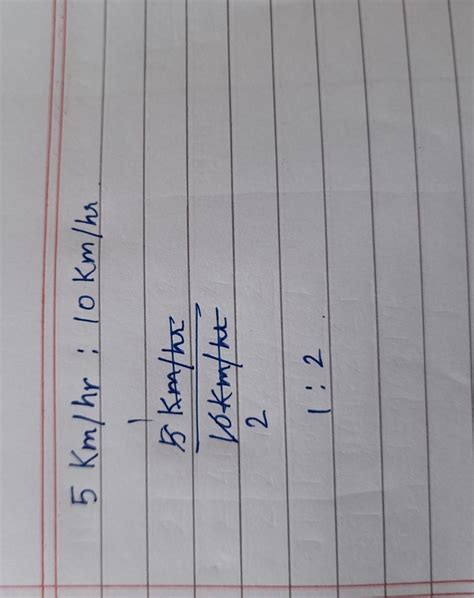 5 Km/hr : 10 Km/hr
1
5 Km/hr
10 Km/hr
2
1 : 2